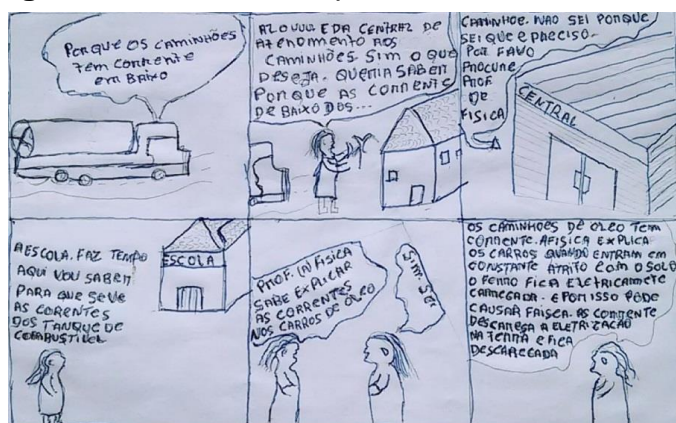 PORQUE OS CAMINHÕES
TEM CORRENTE
EM BAIXO
ALOUUU. E DA CENTRAL DE
ATENDIMENTO AOS
CAMINHÕES. SIM O QUE
DESEJA. QUERIA SABER
PORQUE AS CORRENTE
DE BAIXO DOS...
CAMINHOE. NAO SEI PORQUE
SEI QUE E PRECISO.
POR FAVO
PROCURE
PROF.
DE
FISICA
CENTRAL
A ESCOLA. FAZ TEMPO
AQUI VOU SABER
PARA QUE SEVE
AS CORENTES
DOS TANQUE DE
COMBUSTIVEL
ESCOLA
PROF. (A) FISICA
SABE EXPLICAR
AS CORRENTES
NOS CARROS DE OLEO
SIM. SEI
OS CAMINHOES DE OLEO TEM
CORRENTE. AFISICA EXPLICA
OS CARROS QUANDO ENTRAM EM
CONSTANTE ATRITO COM O SOLO
O FERRO FICA ELETRICAMETE
CARREGADA. E POR ISSO PODE
CAUSAR FAISCA. AS CORRENTE
DESCAREGA A ELETRIZAÇÃO
NA TERRA E FICA
DESCAREGADA